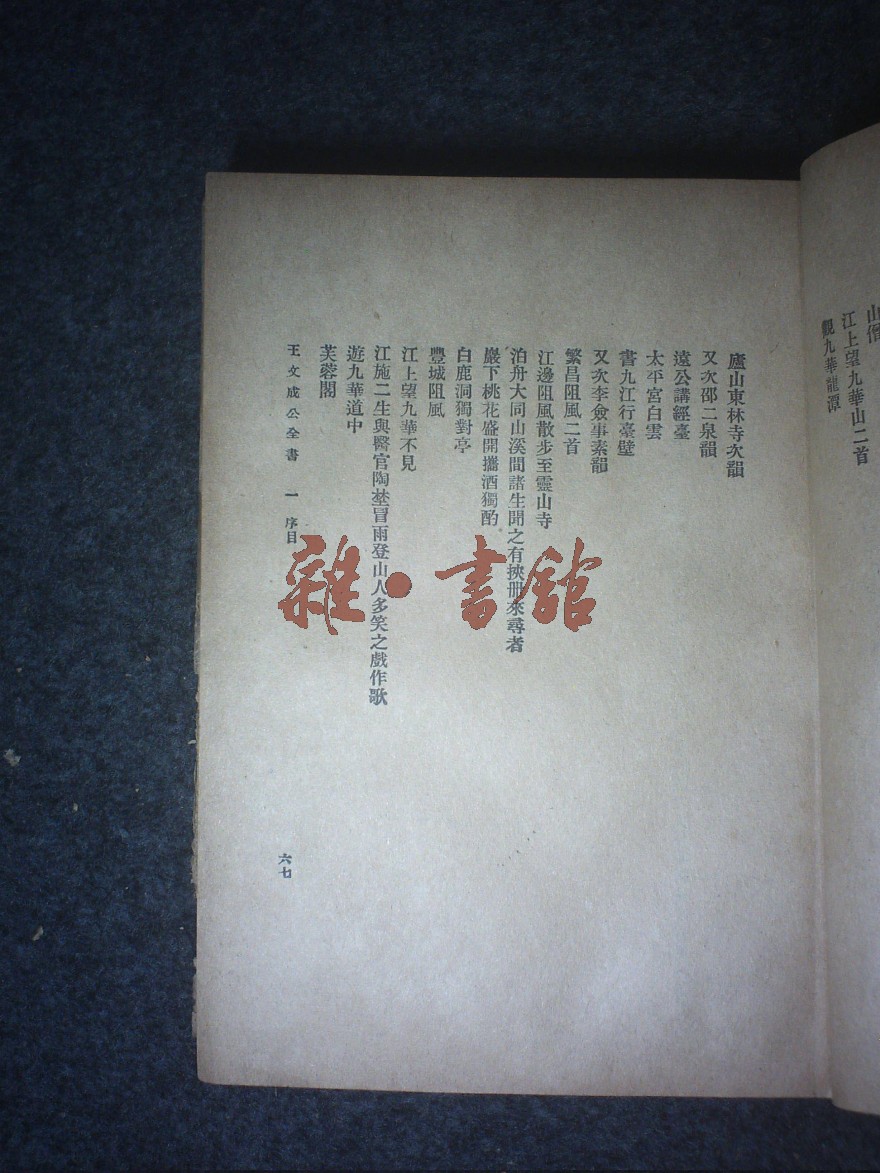 山僧
江上望九華山二首
觀九華龍潭
廬山東林寺次韻
又次邵二泉韻
遠公講經臺
太平宮白雲
書九江行臺壁
又次李僉事素韻
繁昌阻風二首
江邊阻風散步至靈山寺
泊舟大同山溪間諸生聞之有挾冊來尋者
巖下桃花盛開攜酒獨酌
白鹿洞獨對亭
豐城阻風
江上望九華不見
江施二生與醫官陶埜冒雨登山人多笑之戲作歌
遊九華道中
芙蓉閣
王文成公全書 一 序目
六七
雜·書館